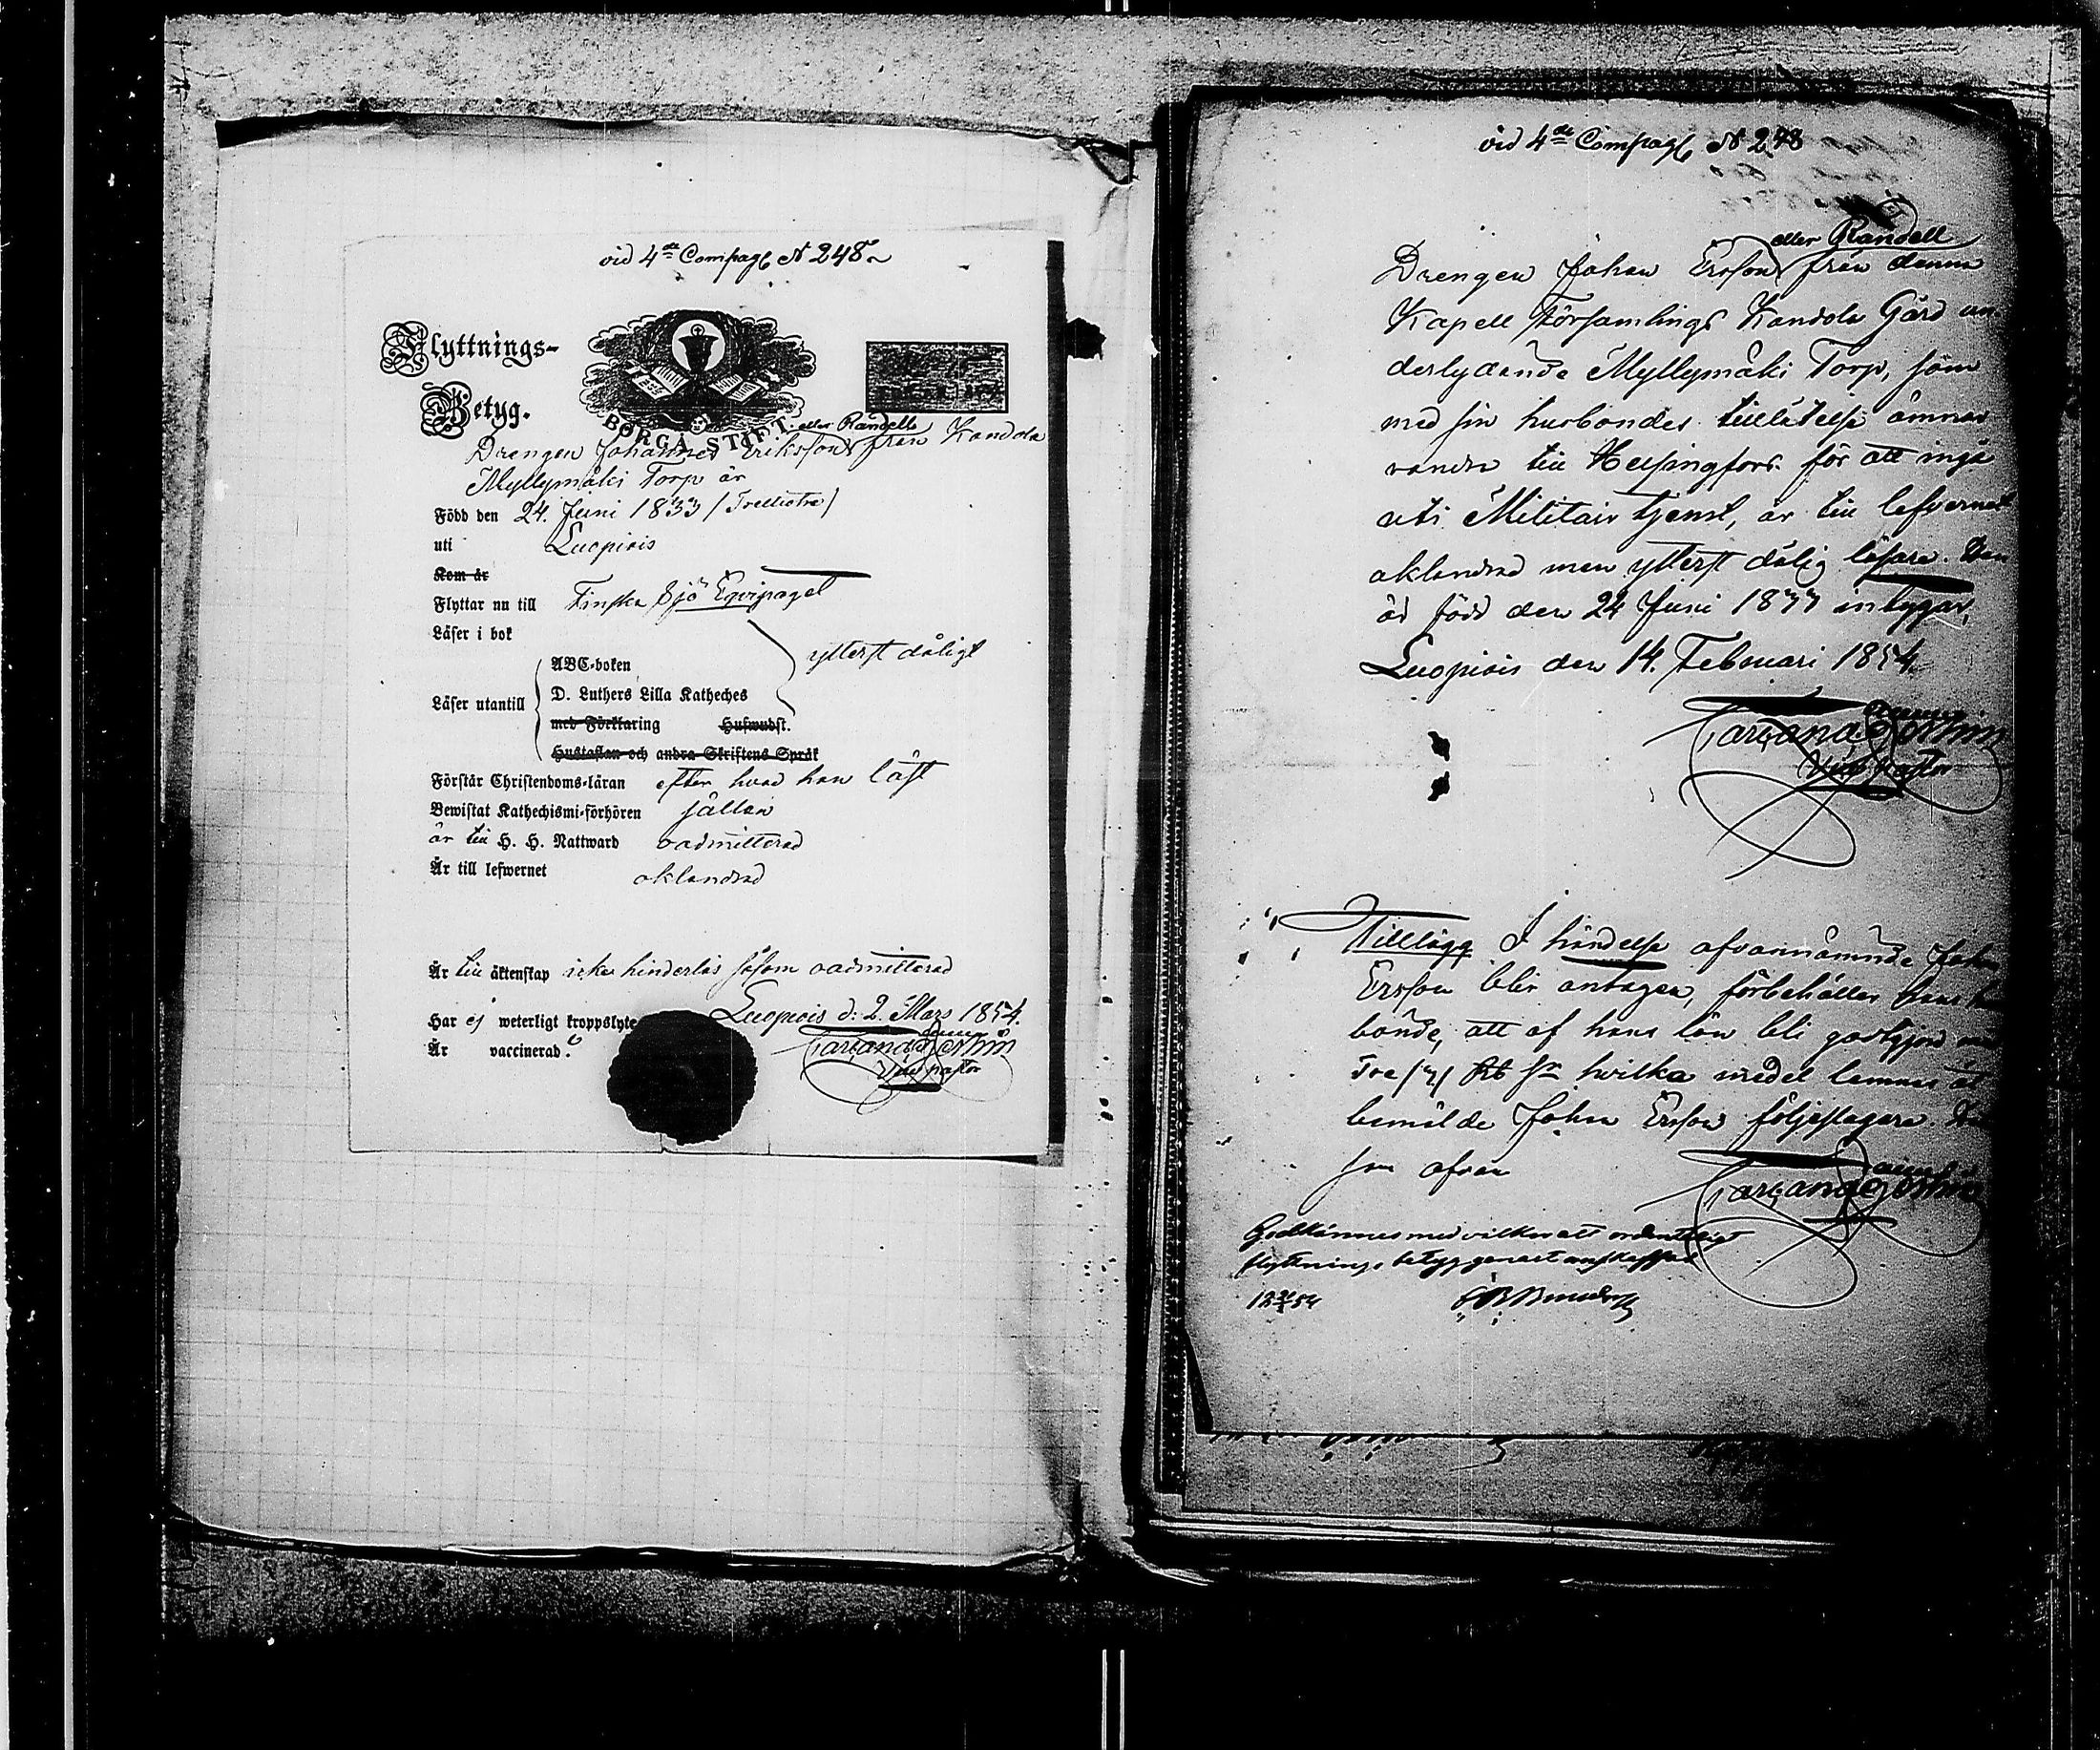 vid 4de Compag N 248
Flyttnings-
Betyg.
BORGÅ STIFT.
eller Randell
Drengen Johannes Eriksson från Kandola
Myllymäki Torp är
Född den 24. Juni 1833 (Trettiotre)
uti Luopiois
Kom är
Flyttar nu till Finska Sjö Eqvipaget
Läser i bok
ytterst dåligt
ABC-boken
Läser utantill D. Luthers Lilla Katheches
med Förklaring Huswudst.
Hustaflan och andra Skriftens Språk
Förstår Christendoms-läran efter hvad han läst
Bewistat Kathechismi-förhören sällan
är till H. H. Nattward oadmitterad
Är till lefwernet oklandrad
Är till äktenskap icke hinderlös såsom oadmitterad
Luopiois d: 2. Mars 1854.
Har ej weterligt kroppslyte
Är vaccinerad.
Vice pastor
vid 4de Compag N 248
eller Randell
Drengen Johan Ersson från denna
Kapell Församlings Kandola Gård un-
derlydande Myllymäki Torp, som
med sin husbondes tillåtelse ämnar
vandra till Helsingfors för att ingå
uti Militair tjenst, är till lefvernet
oklandrad men ytterst dålig läsare. Han
är född den 24 Juni 1833 intygar,
Luopiois den 14. Februari 1854.
Vice pastor
Tillägg I händelse ofvannämnde Johan
Ersson blir antagen, förbehåller hans hus
bonde, att af hans lön bli godtgjord med
Tre (3) Rb Sr hvilka medel lemnas åt
bemälde Johan Ersson följeslagare. Da
som ofvan
Godkännes med vilkor att ordentligt
flyttnings betyg genast anskaffas